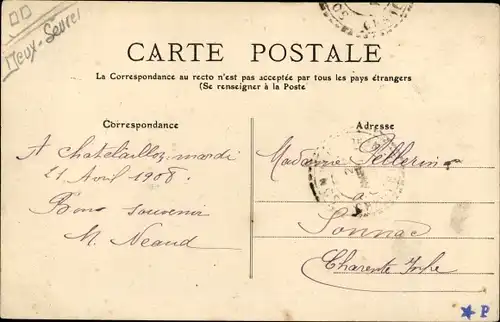 Deux-Sevres
CARTE POSTALE
La Correspondance au recto n'est pas acceptée par tous les pays étrangers
(Se renseigner à la Poste
Correspondance
Adresse
A Chatelaillon mardi
21 Avril 1908.
Bons souvenir
M. Neaud
Madame Pellerin
a
Sonnac
Charente Infre
P